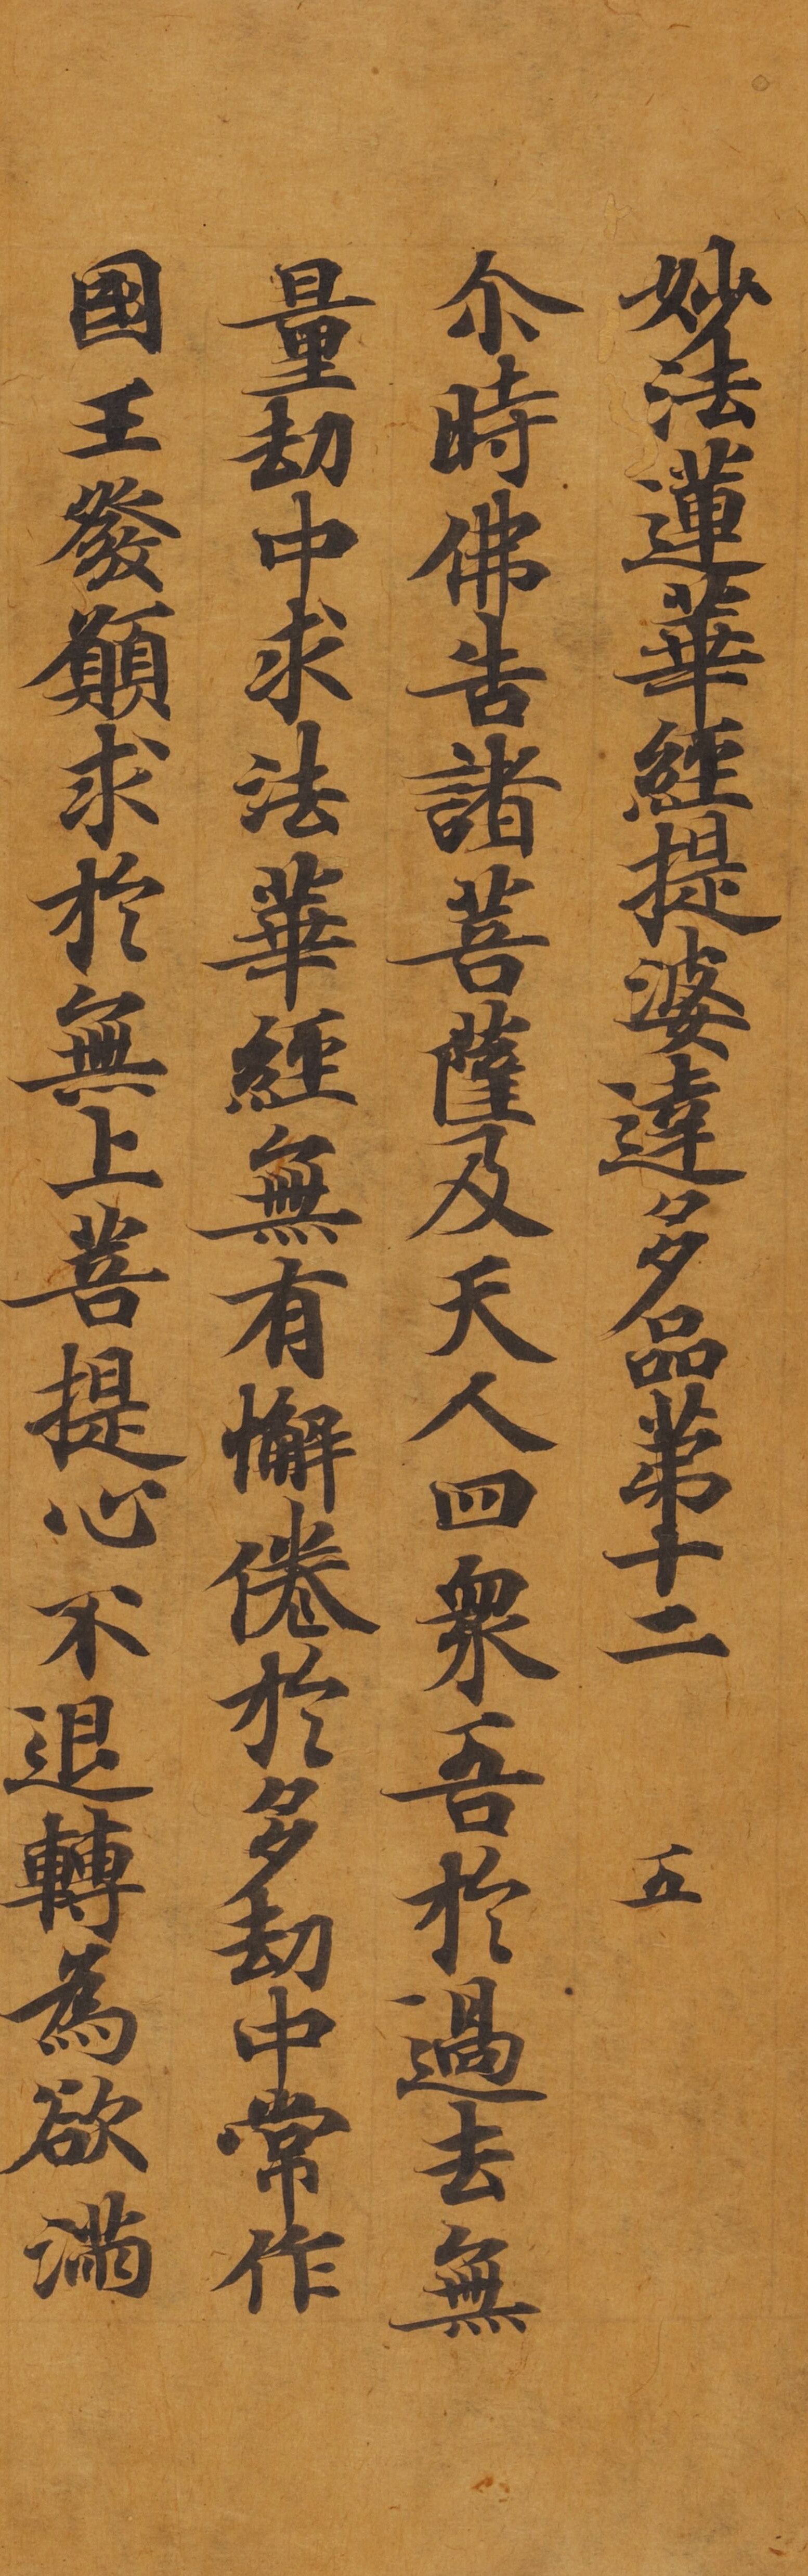 妙法蓮華經提婆達多品苐十二 五
尒時佛告諸菩薩及天人四衆吾於過去無
量劫中求法華經無有懈倦於多劫中常作
國王發願求於無上菩提心不退轉為欲滿